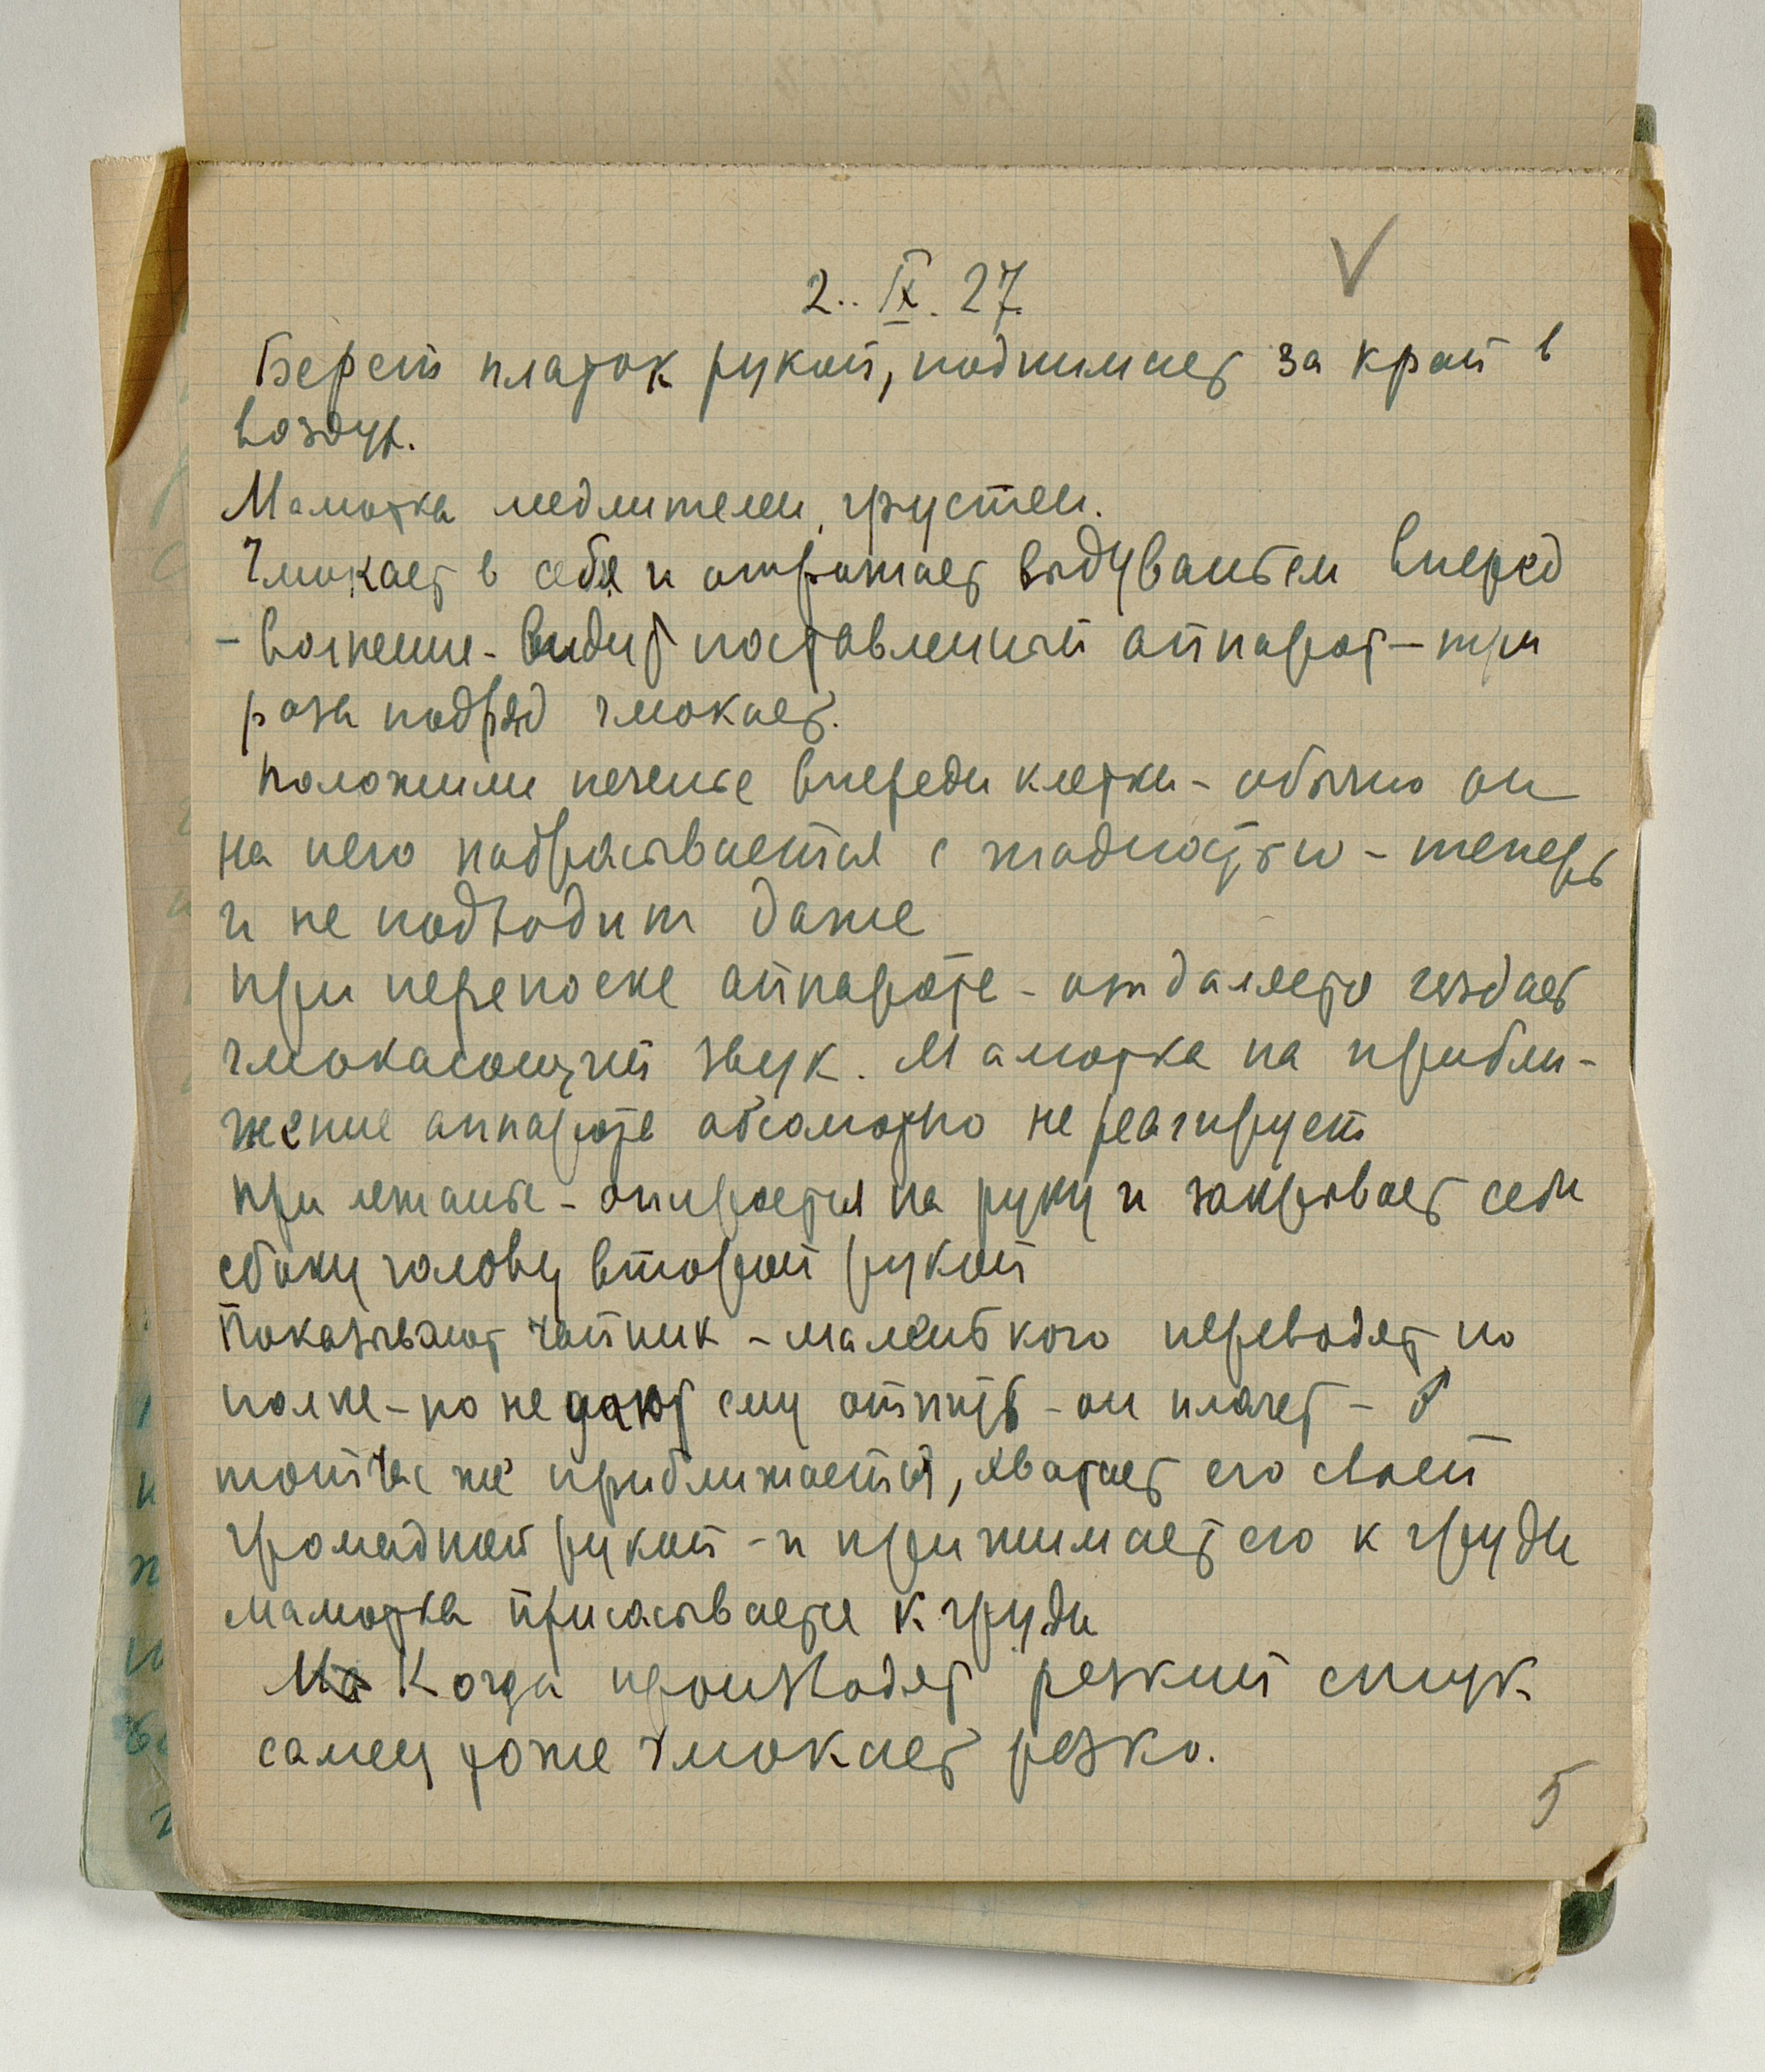 2. IX. 27.
Берет платок рукой, поднимает за край в
воздух.
Малютка медлителен, грустен.
Чмокает в себя и отражает выдуваньем вперед
– волнение – видит поставленный аппарат – три
раза подряд чмокает.
Положили печенье впереди клетки – обычно он
на него набрасывается с жадностью – теперь
и не подходит даже
при переноске аппарата – отдаляется издает
чмокающий звук. Малютка на прибли-
жение аппарата абсолютно не реагирует
при лежанье – опирается на руку и закрывает себе
сбоку голову второй рукой
Показывают чайник – маленького переводят по
полке – но не дают ему отпить – он плачет –
тотчас же приближается, хватает его своей
громадной рукой – и прижимает его к груди
малютка присасывается к груди
Ма Когда производят резкий стук
самец тоже чмокает резко.
5